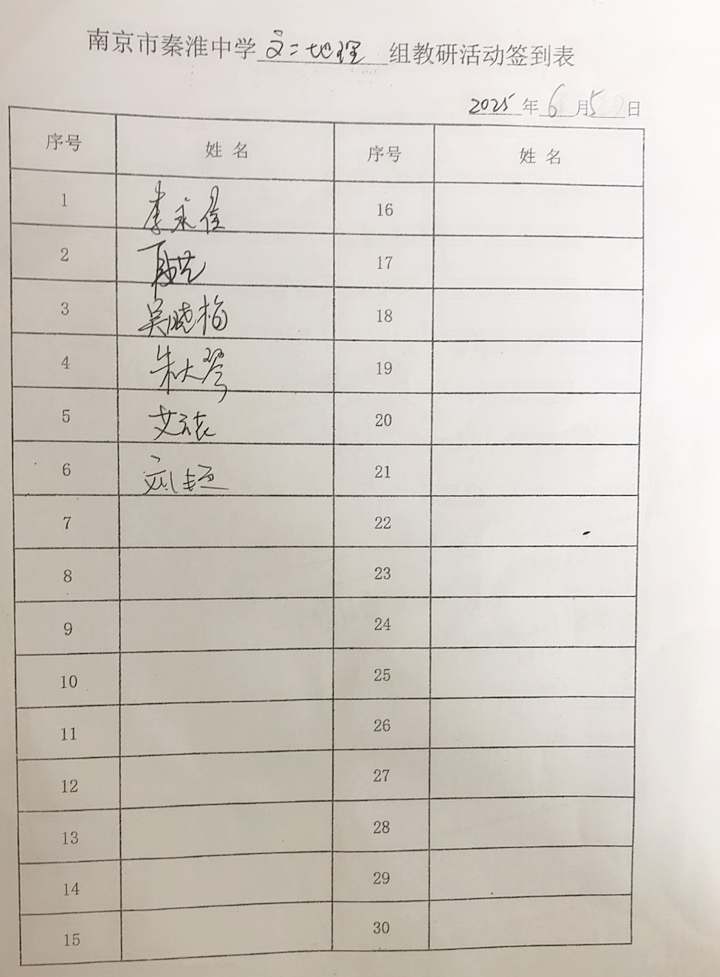 南京市秦淮中学高二地理组教研活动签到表
2025年6月5日
序号 姓名 序号 姓名
1 李永佳 16
2 17
3 吴晓梅 18
4 朱大琴 19
5 艾 20
6 刘 21
7 22
8 23
9 24
10 25
11 26
12 27
13 28
14 29
15 30